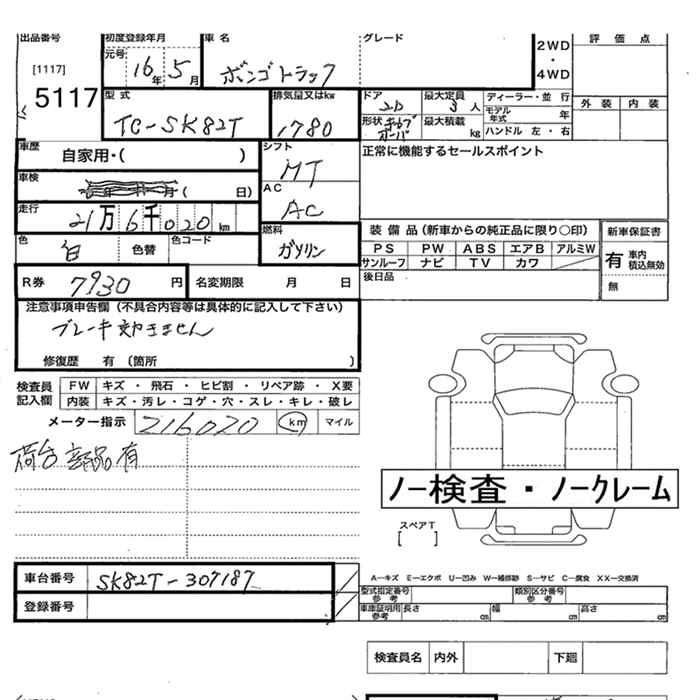 出品番号 初度登録年月 車名 グレード 2WD・4WD 評価点
[1117] 元号 16年 5月 ボンゴトラック 外装 内装
5117 型式 排気量又はkw ドア 2D 最大定員 3人 ディーラー・並行
TC-SK82T 1780 形状 最大積載 kg モデル年式 年
ハンドル 左・右
車歴 自家用・( ) シフト MT 正常に機能するセールスポイント
車検 (日) AC AC
走行 21万6千020km 燃料 ガソリン 装備品(新車からの純正品に限り○印) 新車保証書
色 白 色替 色コード PS PW ABS エアB アルミW 有 車内積込無効
サンルーフ ナビ TV カワ 無
R券 7930円 名変期限 月 日 後日品
注意事項申告欄(不具合内容等は具体的に記入して下さい)
修復歴 有(箇所 )
検査員記入欄 FW キズ・飛石・ヒビ割・リペア跡・X要
内装 キズ・汚レ・コゲ・穴・スレ・キレ・破レ
メーター指示 216020 km マイル
荷台部品有
ノー検査・ノークレーム
スペアT
[ ]
車台番号 SK82T-307187 A―キズ E―エクボ U―凹み W―補修跡 S―サビ C―腐食 XX―交換済
登録番号 型式指定番号参考 類別区分番号参考
車庫証明用参考 長さ cm 幅 cm 高さ cm
検査員名 内外 下廻